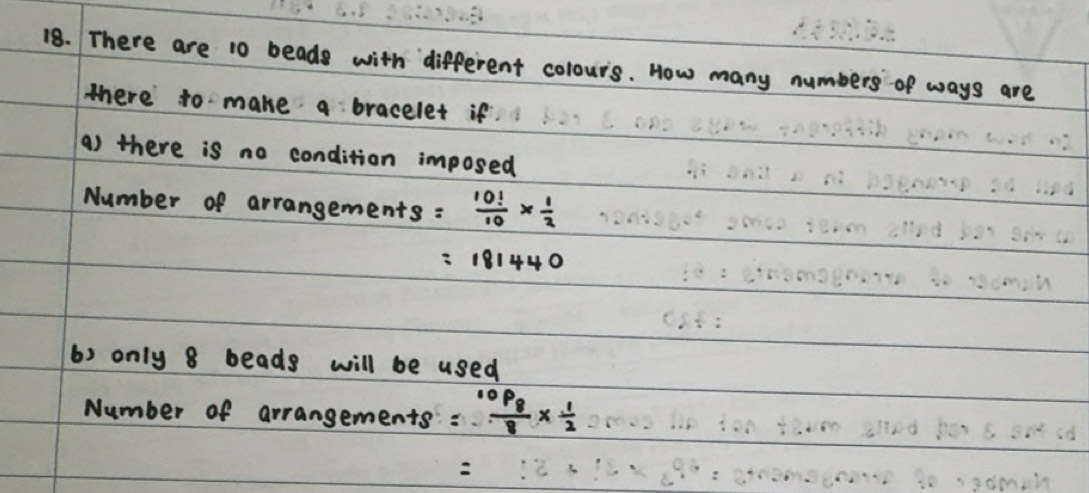 18. There are 10 beads with different colours. How many numbers of ways are
there to make a bracelet if
a) there is no condition imposed
Number of arrangements = 10!/10 × 1/2
= 181440
b) only 8 beads will be used
Number of arrangements = ¹⁰P₈/8 × 1/2
=